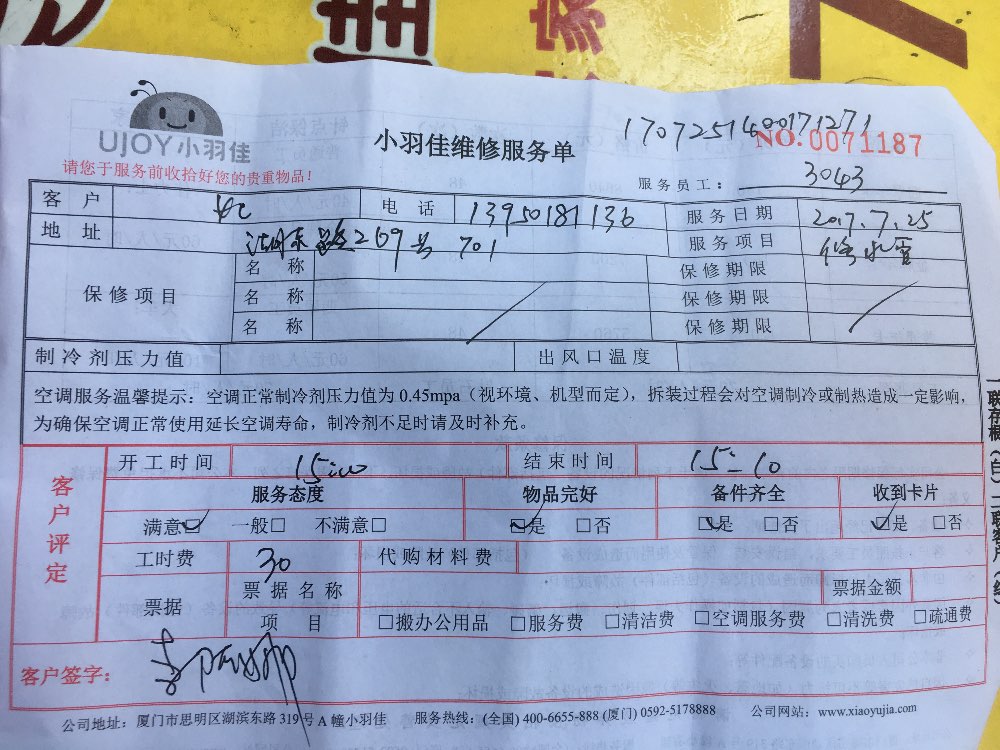 家
UJOY小羽佳
小羽佳维修服务单
1707251400171271
NO.0071187
请您于服务前收拾好您的贵重物品！
服务员工： 3043
客户 电话 13950181136 服务日期 2017.7.25
地址 269号 701 服务项目 修水管
保修项目 名称 保修期限
名称 保修期限
名称 保修期限
制冷剂压力值 出风口温度
空调服务温馨提示：空调正常制冷剂压力值为 0.45mpa（视环境、机型而定），拆装过程会对空调制冷或制热造成一定影响，
为确保空调正常使用延长空调寿命，制冷剂不足时请及时补充。
客户评定
开工时间 15:00 结束时间 15:10
服务态度 物品完好 备件齐全 收到卡片
满意☑ 一般□ 不满意□ ☑是 □否 ☑是 □否 ☑是 □否
工时费 30 代购材料费
票据 票据名称 票据金额
项目 □搬办公用品 □服务费 □清洁费 □空调服务费 □清洗费 □疏通费
客户签字：
公司地址：厦门市思明区湖滨东路 319 号 A 幢小羽佳 服务热线：(全国) 400-6655-888 (厦门) 0592-5178888 公司网站：www.xiaoyujia.com
一联存根（白）二联客户（红